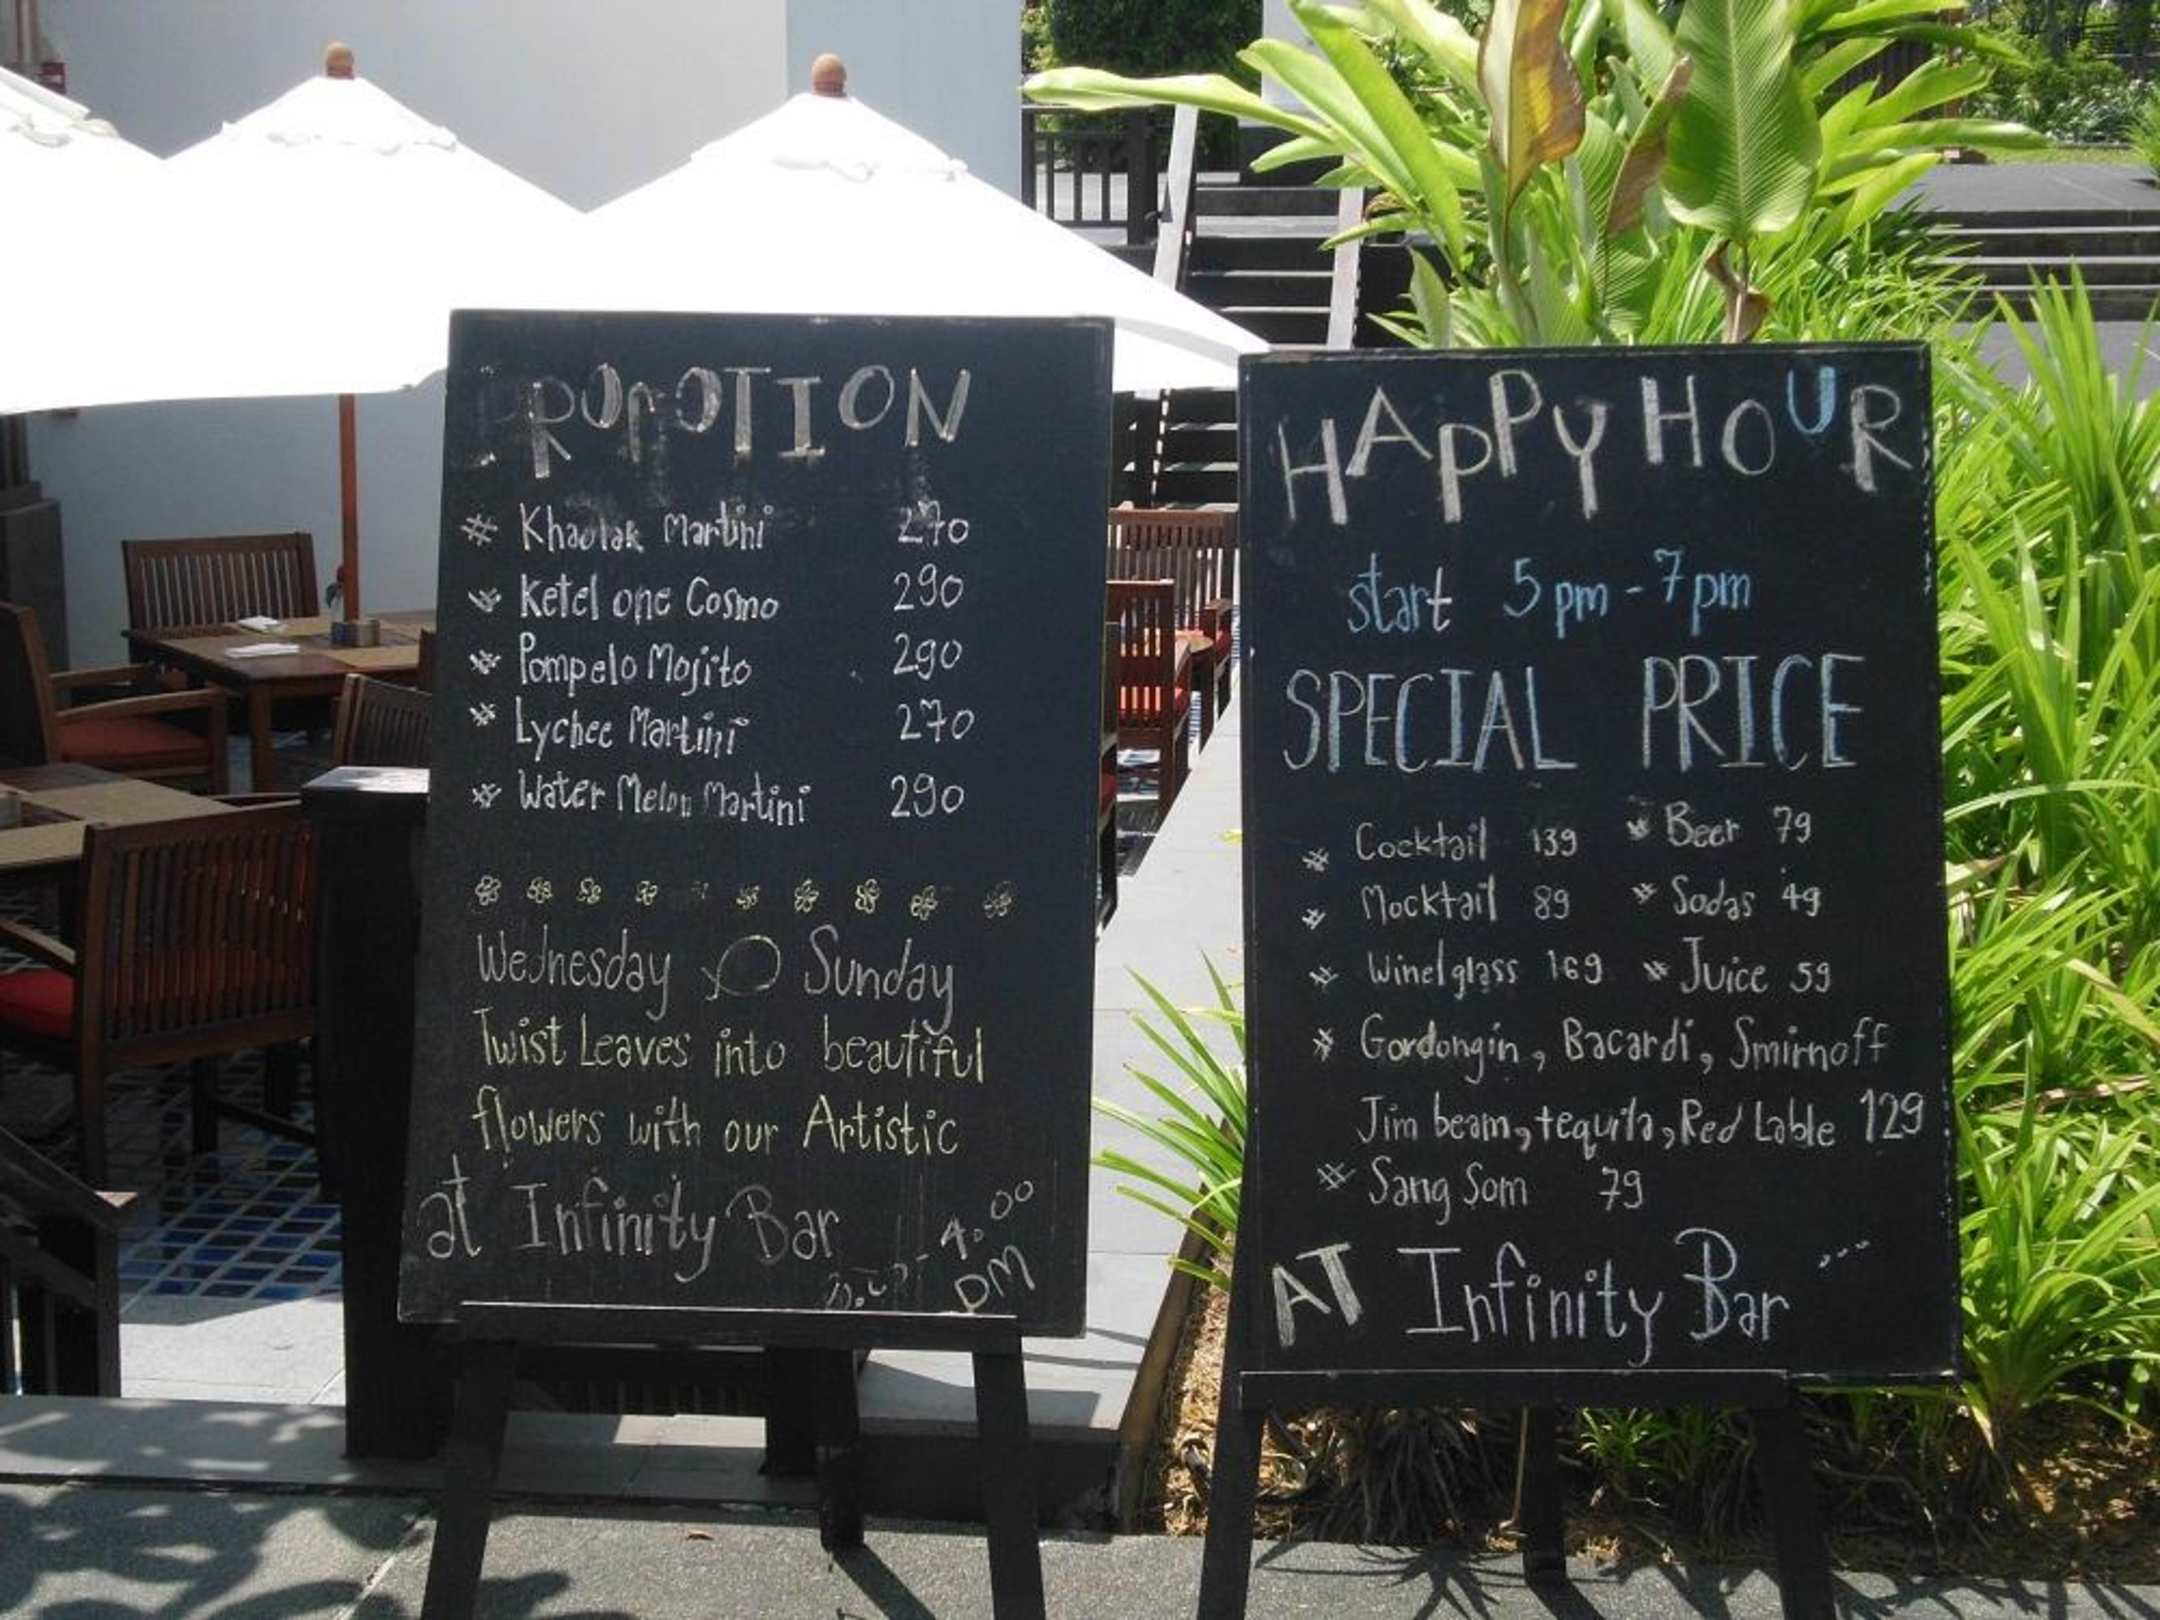 PROMOTION
Khaolak Martini 270
Ketel one Cosmo 290
Pompelo Mojito 290
Lychee Martini 270
Water Melon Martini 290
Wednesday Sunday
Twist Leaves into beautiful
flowers with our Artistic
at Infinity Bar
- 4.00
PM
HAPPY HOUR
start 5pm - 7pm
SPECIAL PRICE
Cocktail 139 Beer 79
Mocktail 89 Sodas 49
Wine/glass 169 Juice 59
Gordongin, Bacardi, Smirnoff
Jim beam, tequila, Red Lable 129
Sang Som 79
AT Infinity Bar ...